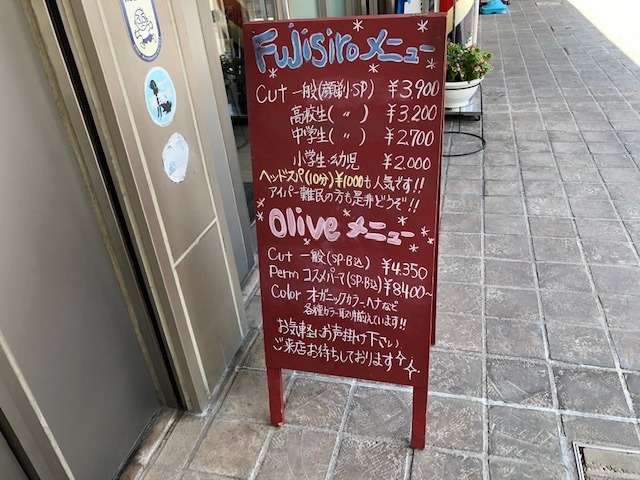 Fujisiro メニュー
Cut 一般(顔剃・SP) ¥3,900
高校生(〃) ¥3,200
中学生(〃) ¥2,700
小学生・幼児 ¥2,000
ヘッドスパ(10分)¥1000も人気です!!
アイパー難民の方も是非どうぞ!!
Olive メニュー
Cut 一般(SP・B込) ¥4,350
Perm コスメパーマ(SP・B込) ¥8400~
Color オーガニックカラー、ヘナなど
各種カラー取り揃えています!!
お気軽にお声掛け下さい
ご来店お待ちしております